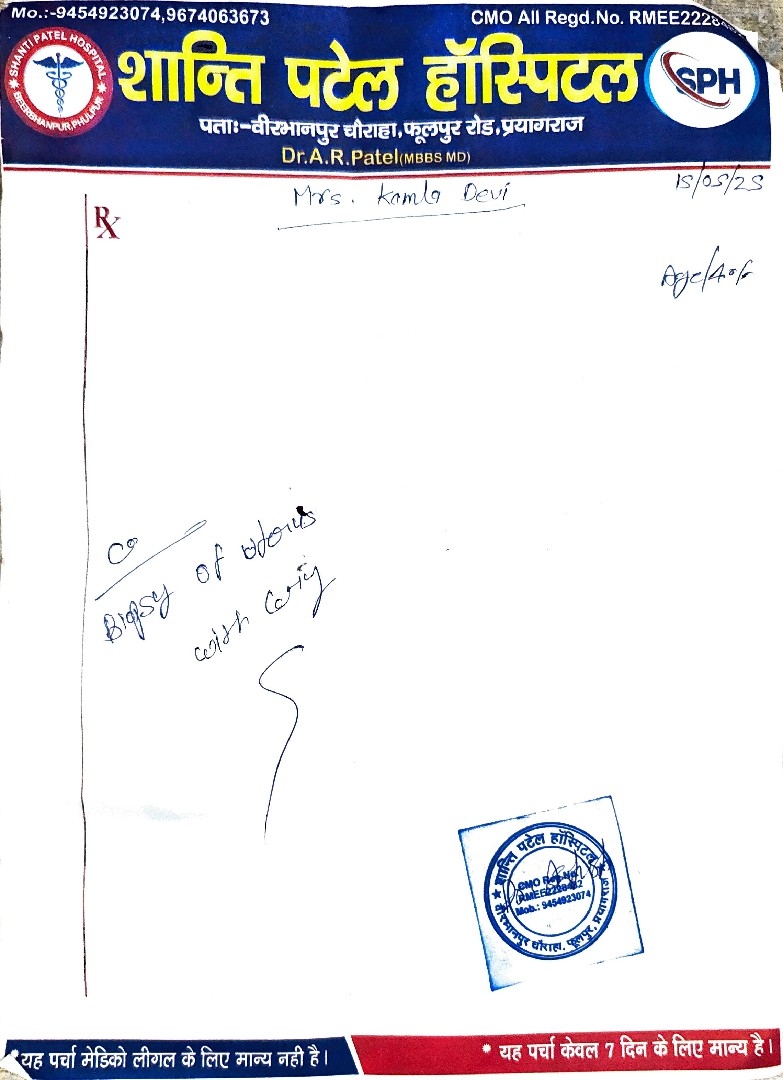 Mo.:-9454923074,9674063673
CMO All Regd.No. RMEE2228
SHANTI PATEL HOSPITAL
BEERBHANPUR, PHULPUR
शान्ति पटेल हॉस्पिटल
SPH
पताः-वीरभानपुर चौराहा,फूलपुर रोड,प्रयागराज
Dr.A.R.Patel(MBBS MD)
Mrs. Kamla Devi
Rx
Age/40/
Biopsy of uterus
with
शान्ति पटेल हॉस्पिटल
CMO Reg.No.
Mob.: 9454923074
वीरभानपुर चौराहा, फूलपुर, प्रयागराज
*यह पर्चा मेडिको लीगल के लिए मान्य नही है।
* यह पर्चा केवल 7 दिन के लिए मान्य है।